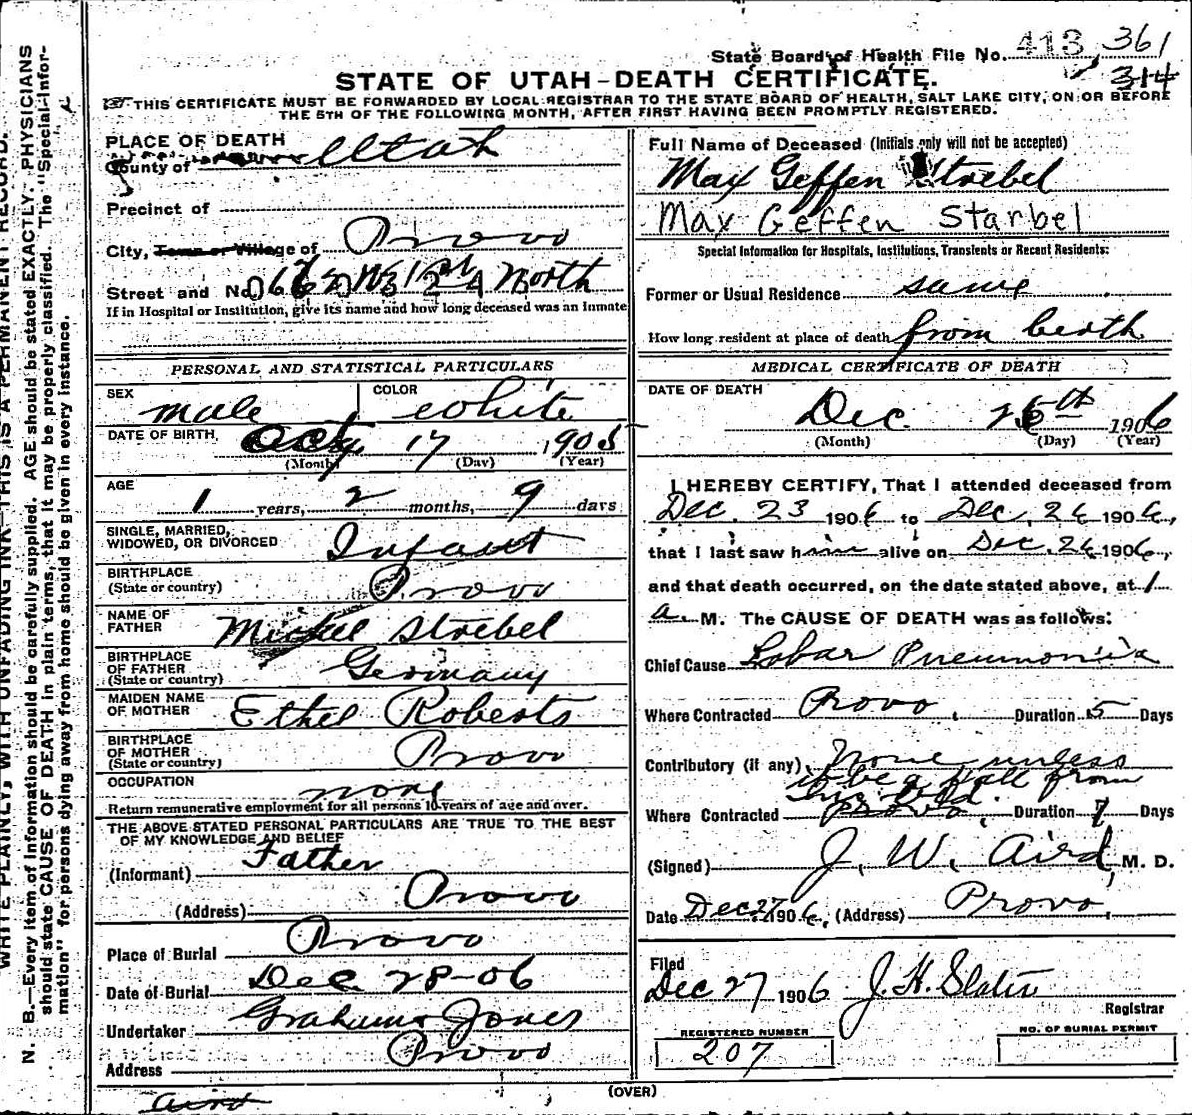 State Board of Health File No. 413 361
314
STATE OF UTAH-DEATH CERTIFICATE.
THIS CERTIFICATE MUST BE FORWARDED BY LOCAL REGISTRAR TO THE STATE BOARD OF HEALTH, SALT LAKE CITY, ON OR BEFORE
THE 5TH OF THE FOLLOWING MONTH, AFTER FIRST HAVING BEEN PROMPTLY REGISTERED.
WRITE PLAINLY, WITH UNFADING INK-THIS IS A PERMANENT RECORD.
N. B.—Every item of information should be carefully supplied. AGE should be stated EXACTLY. PHYSICIANS
should state CAUSE OF DEATH in plain terms, that it may be properly classified. The "Special Infor-
mation" for persons dying away from home should be given in every instance.
PLACE OF DEATH
County of Utah
Precinct of
City, Town or Village of Provo
Street and No. North
If in Hospital or Institution, give its name and how long deceased was an Inmate
PERSONAL AND STATISTICAL PARTICULARS
SEX male COLOR white
DATE OF BIRTH, Oct 17 1905
(Month) (Day) (Year)
AGE
1 years, 2 months, 9 days
SINGLE, MARRIED,
WIDOWED, OR DIVORCED Infant
BIRTHPLACE
(State or country) Provo
NAME OF
FATHER Michel Strebel
BIRTHPLACE
OF FATHER
(State or country) Germany
MAIDEN NAME
OF MOTHER Ethel Roberts
BIRTHPLACE
OF MOTHER
(State or country) Provo
OCCUPATION none
Return remunerative employment for all persons 10 years of age and over.
THE ABOVE STATED PERSONAL PARTICULARS ARE TRUE TO THE BEST
OF MY KNOWLEDGE AND BELIEF
(Informant) Father
(Address) Provo
Place of Burial Provo
Date of Burial Dec. 28-06
Undertaker Graham Jones
Address Provo
Aird
Full Name of Deceased (Initials only will not be accepted)
Max Geffen Strebel
Max Geffen Starbel
Special Information for Hospitals, Institutions, Transients or Recent Residents:
Former or Usual Residence same
How long resident at place of death from berth
MEDICAL CERTIFICATE OF DEATH
DATE OF DEATH
Dec. th 1906
(Month) (Day) (Year)
I HEREBY CERTIFY, That I attended deceased from
Dec. 23 1906 to Dec. 26 1906,
that I last saw him alive on Dec. 26 1906,
and that death occurred, on the date stated above, at 1
a. M. The CAUSE OF DEATH was as follows:
Chief Cause Lobar Pneumonia
Where Contracted Provo. Duration 5 Days
Contributory (if any) None unless
it be a fall from
Where Contracted Provo. Duration 7 Days
(Signed) J. W. Aird, M. D.
Date Dec 27 1906, (Address) Provo,
Filed
Dec 27 1906 J. H. Slater
Registrar
REGISTERED NUMBER
207
NO. OF BURIAL PERMIT
(OVER)